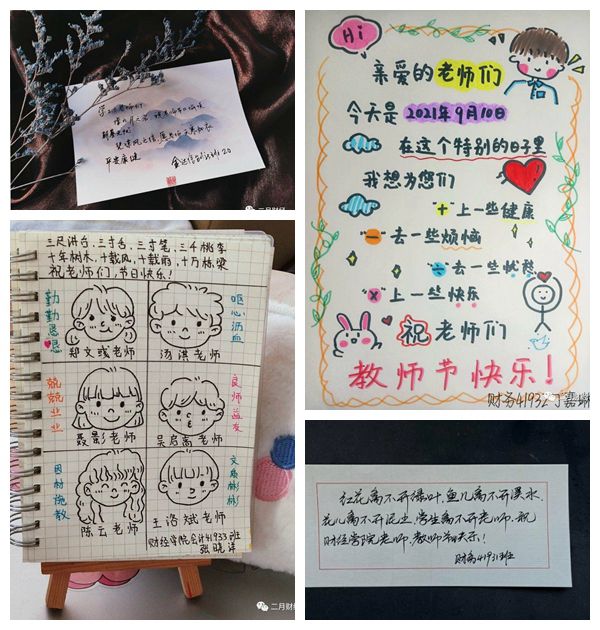 平安康健
二月财经
Hi
亲爱的老师们
今天是2021年9月10日
在这个特别的日子里
我想为您们
"+"上一些健康
"-"去一些烦恼
"÷"去一些忧愁
"×"上一些快乐
祝老师们
教师节快乐!
财务41932
三尺讲台,三寸舌,三寸笔,三千桃李
十年树木,十载风,十载雨,十万栋梁
祝老师们,节日快乐!
勤勤恳恳
呕心沥血
郑文彧老师
汤淇老师
兢兢业业
良师益友
聂影老师
吴启高老师
因材施教
文质彬彬
陈云老师
王洛斌老师
财经学院会计41933班
张晓洋
二月财经
红花离不开绿叶,鱼儿离不开溪水,
花儿离不开泥土,学生离不开老师,祝
财经学院老师,教师节快乐!
财务41931班